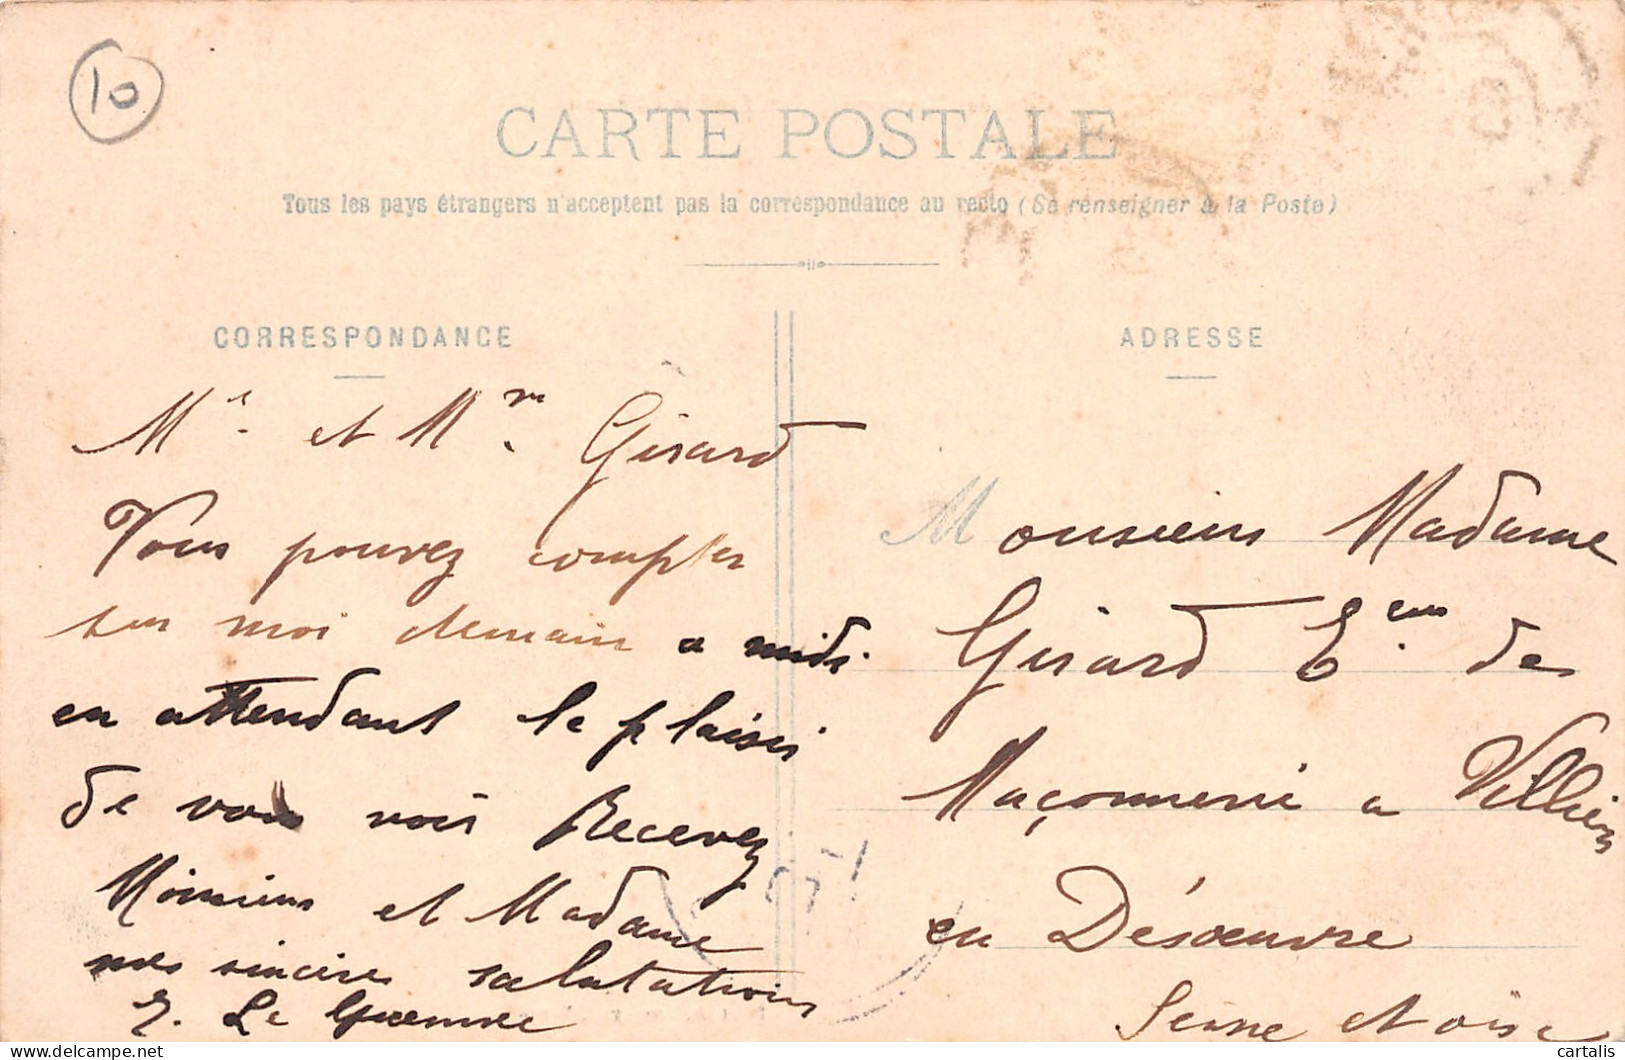 10
CARTE POSTALE
Tous les pays étrangers n'acceptent pas la correspondance au recto (Se renseigner à la Poste)
CORRESPONDANCE
Mr. et Mm. Girard
Vous pouvez compter
sur moi demain a midi.
en attendant le plaisir
de vous voir Recevez
Monsieur et Madame
mes sincères salutations
Y. Le
ADRESSE
Monsieur Madame
Girard Eem. de
Maçonnerie a Villiers
en Désoeuvre
Seine et oise
cartalis